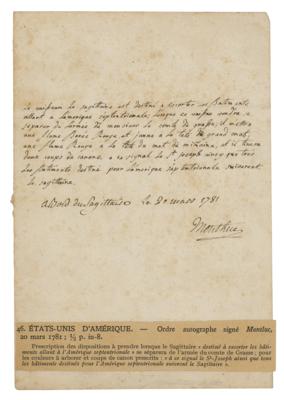 Le vaisseau le sagittaire est destiné a escorter les batiments
allant a L'amerique septentrionale, lorsque ce vaisseau voudra se
separer de l'armée de monsieur le comte de grasse, il mettra
une flame Rouge et jaune a la tete du grand mat,
une flame Rouge a la tete du mat de misaine, et il tirera
deux coups de canons, a ce signal le St joseph ainsy que tous
les batiments destinés pour L'amerique septentrionale suivront
le sagittaire.
a bord du Sagittaire Le 20 mars 1781
Montluc
46. ÉTATS-UNIS D'AMÉRIQUE. — Ordre autographe signé Montluc,
20 mars 1781 ; ½ p. in-8.
Prescription des dispositions à prendre lorsque le Sagittaire « destiné à escorter les bâti-
ments allant à l'Amérique septentrionale » se séparera de l'armée du comte de Grasse ; pour
les couleurs à arborer et coups de canon prescrits : « à ce signal le St-Joseph ainsi que tous
les bâtiments destinés pour l'Amérique septentrionale suivront le Sagittaire ».